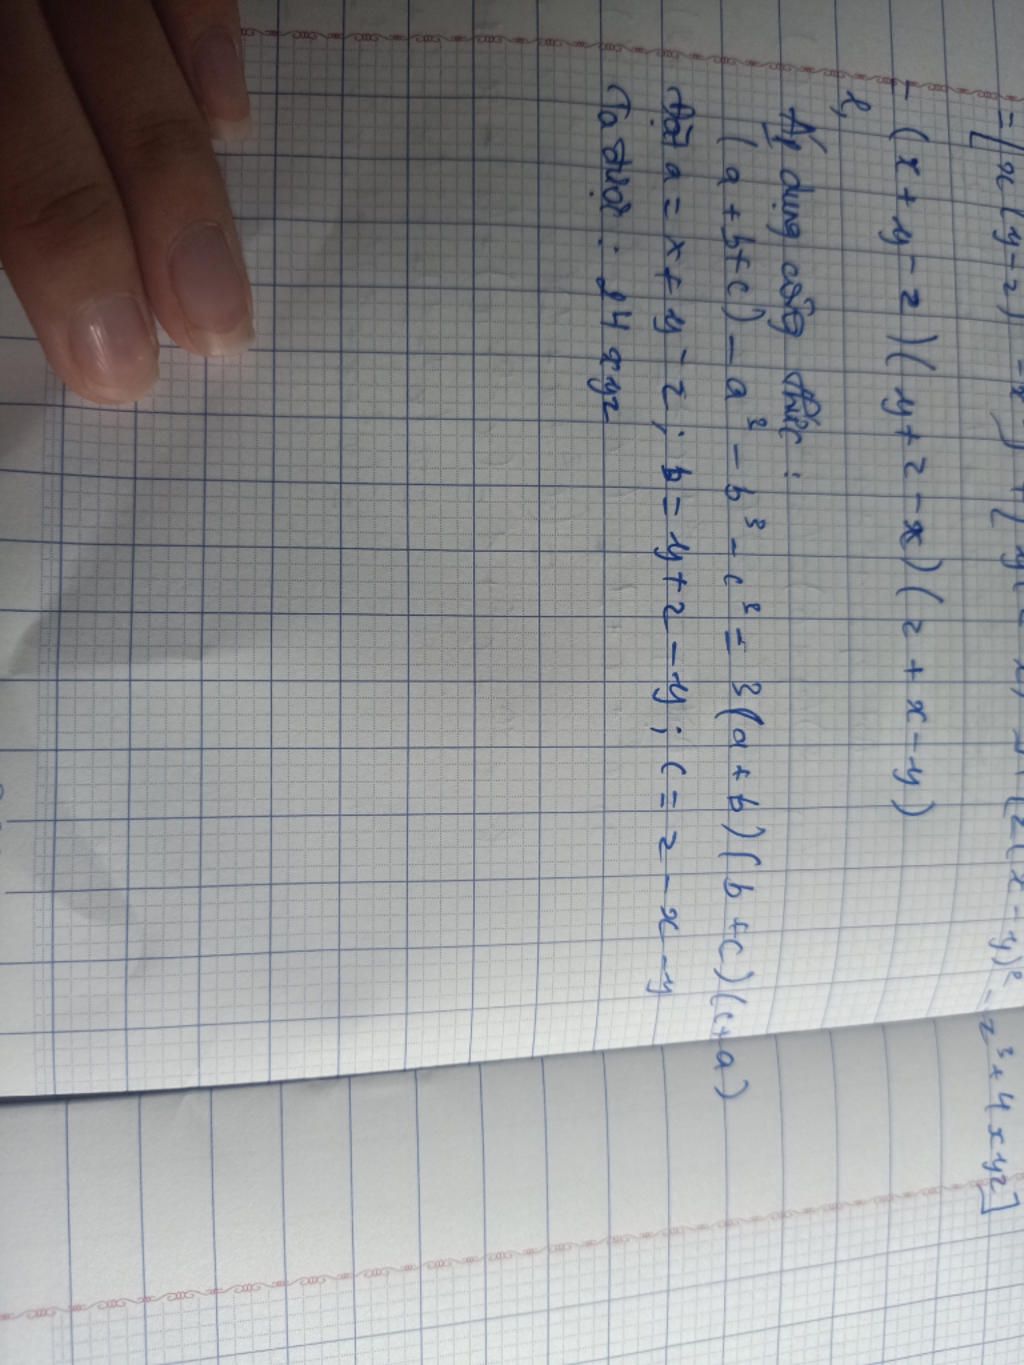 = [x(y-z)² - x³] + [y(z-x)² [(z(x-y)² - z³ + 4xyz]
= (x+y-z)(y+z-x)(z+x-y)
l,
Áp dụng công thức :
(a+b+c)³ - a³ - b³ - c³ = 3(a+b)(b+c)(c+a)
Đặt a = x+y-z ; b = y+z-y ; c = z-x-y
Ta được : 24xyz